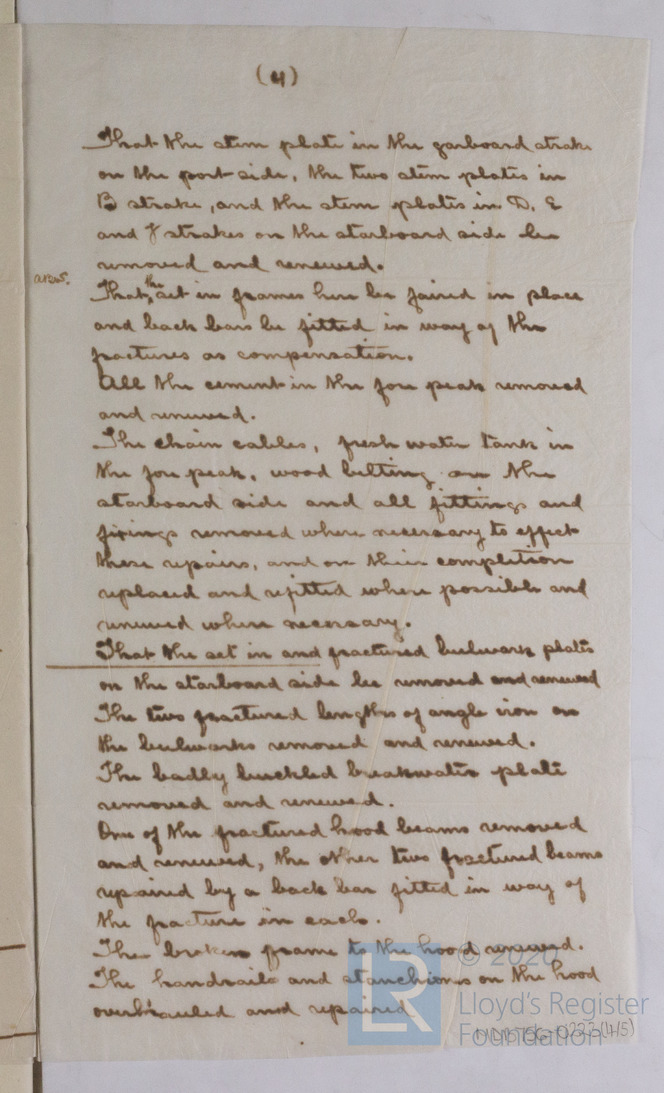 (4)
That the stem plate in the garboard strake
on the port side, the two stem plates in
B strake, and the stem plates in D. E
and F strakes on the starboard side be
removed and renewed.
That the set in frames here be faired in place
and back bars be fitted in way of the
fractures as compensation.
All the cement in the fore peak removed
and renewed.
The chain cables, fresh water tank in
the fore peak, wood belting on the
starboard side and all fittings and
fixings removed where necessary to effect
these repairs, and on their completion
replaced and refitted where possible and
renewed where necessary.
That the set in and fractured bulwark plates
on the starboard side be removed and renewed
The two fractured lengths of angle iron on
the bulwarks removed and renewed.
The badly buckled breakwater plate
removed and renewed.
One of the fractured hood beams removed
and renewed, the other two fractured beams
repaired by a back bar fitted in way of
the fracture in each.
The broken frame to the hood renewed.
The handrails and stanchions on the hood
overhauled and repaired
LR
© 2020
Lloyd's Register
Foundation